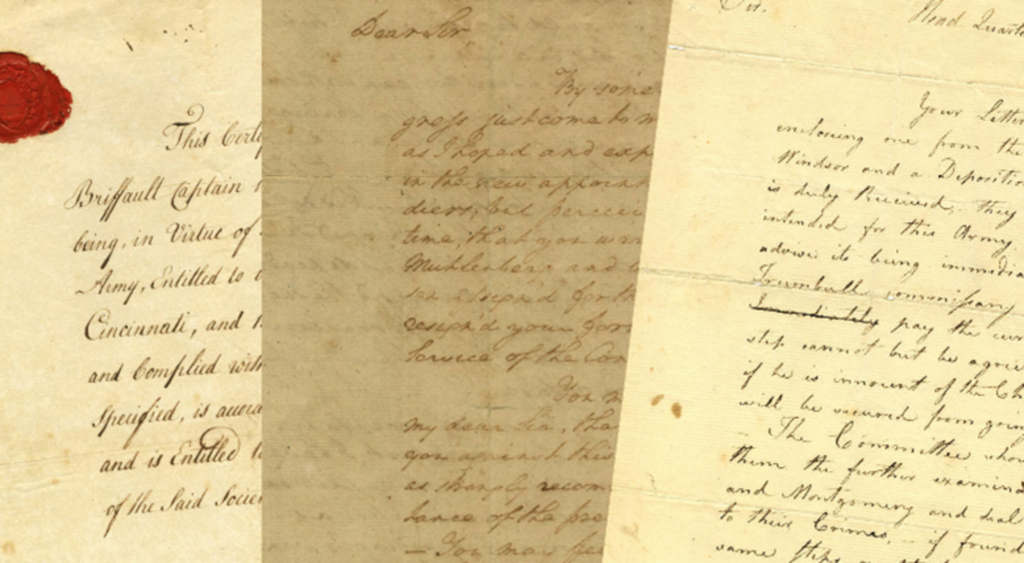 This Certi
Briffault Captain
being, in Virtue of
Army, Entitled to
Cincinnati, and
and Complied with
Specified, is accord
and is Entitled to
of the Said Socie
Dear Sir
By some
gress just come to
as I hoped and exp
in the new appoint
diers, but percei
time, that you were
Muhlenberg and
sen assign'd for th
resign'd your for
Service of the Con
For
my dear Sir, tha
you against this
as strongly recom
lance of the pre
— You may fee
Sir.
Head Quarte
Your Letter
enclosing one from the
Windsor and a Depositio
is duly Received, they
intended for this Army.
advise its being immedia
Trumbull, commissary
Immediately pay the curr
step cannot but be agree
if he is innocent of the Ch
will be secured from goin
The Committee who
them the further examin
and Montgomery and deal
to their Crimes, — if found
same steps